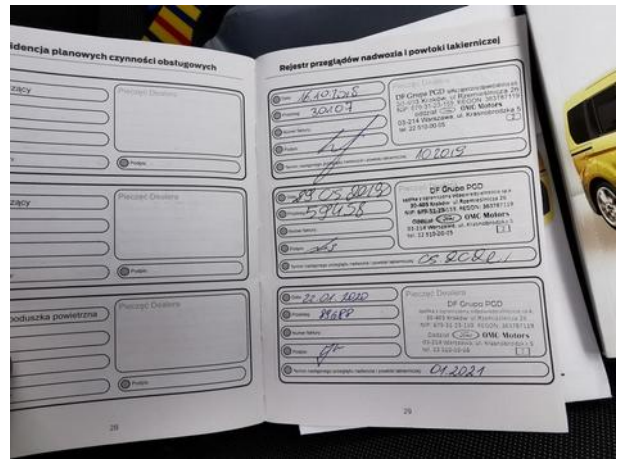 idencja planowych czynności obsługowych
zący
Pieczęć Dealera
Podpis
zący
Pieczęć Dealera
Podpis
poduszka powietrzna
Pieczęć Dealera
Podpis
28
Rejestr przeglądów nadwozia i powłoki lakierniczej
Data 16.10.2018
Przebieg 30107
Numer faktury
Podpis
Termin następnego przeglądu nadwozia i powłoki lakierniczej 10.2019
Pieczęć Dealera
DF Grupa PGD
30-403 Kraków, ul. Rzemieślnicza 26
NIP: 679-31-23-159, REGON: 363787119
oddział Ford OMC Motors
03-214 Warszawa, ul. Krasnobrodzka 5
tel. 22 510-00-05
2
Data 29 05 2019
Przebieg 59458
Numer faktury
Podpis
Termin następnego przeglądu nadwozia i powłoki lakierniczej
Pieczęć Dealera
DF Grupa PGD
30-403 Kraków, ul. Rzemieślnicza 26
NIP: 679-31-23-159, REGON: 363787119
Oddział Ford OMC Motors
03-214 Warszawa, ul. Krasnobrodzka 5
2
Data 22.01.2020
Przebieg
Numer faktury
Podpis
Termin następnego przeglądu nadwozia i powłoki lakierniczej 01.2021
Pieczęć Dealera
DF Grupa PGD
30-403 Kraków, ul. Rzemieślnicza 26
NIP: 679-31-23-159, REGON: 363787119
Oddział Ford OMC Motors
03-214 Warszawa, ul. Krasnobrodzka 5
29